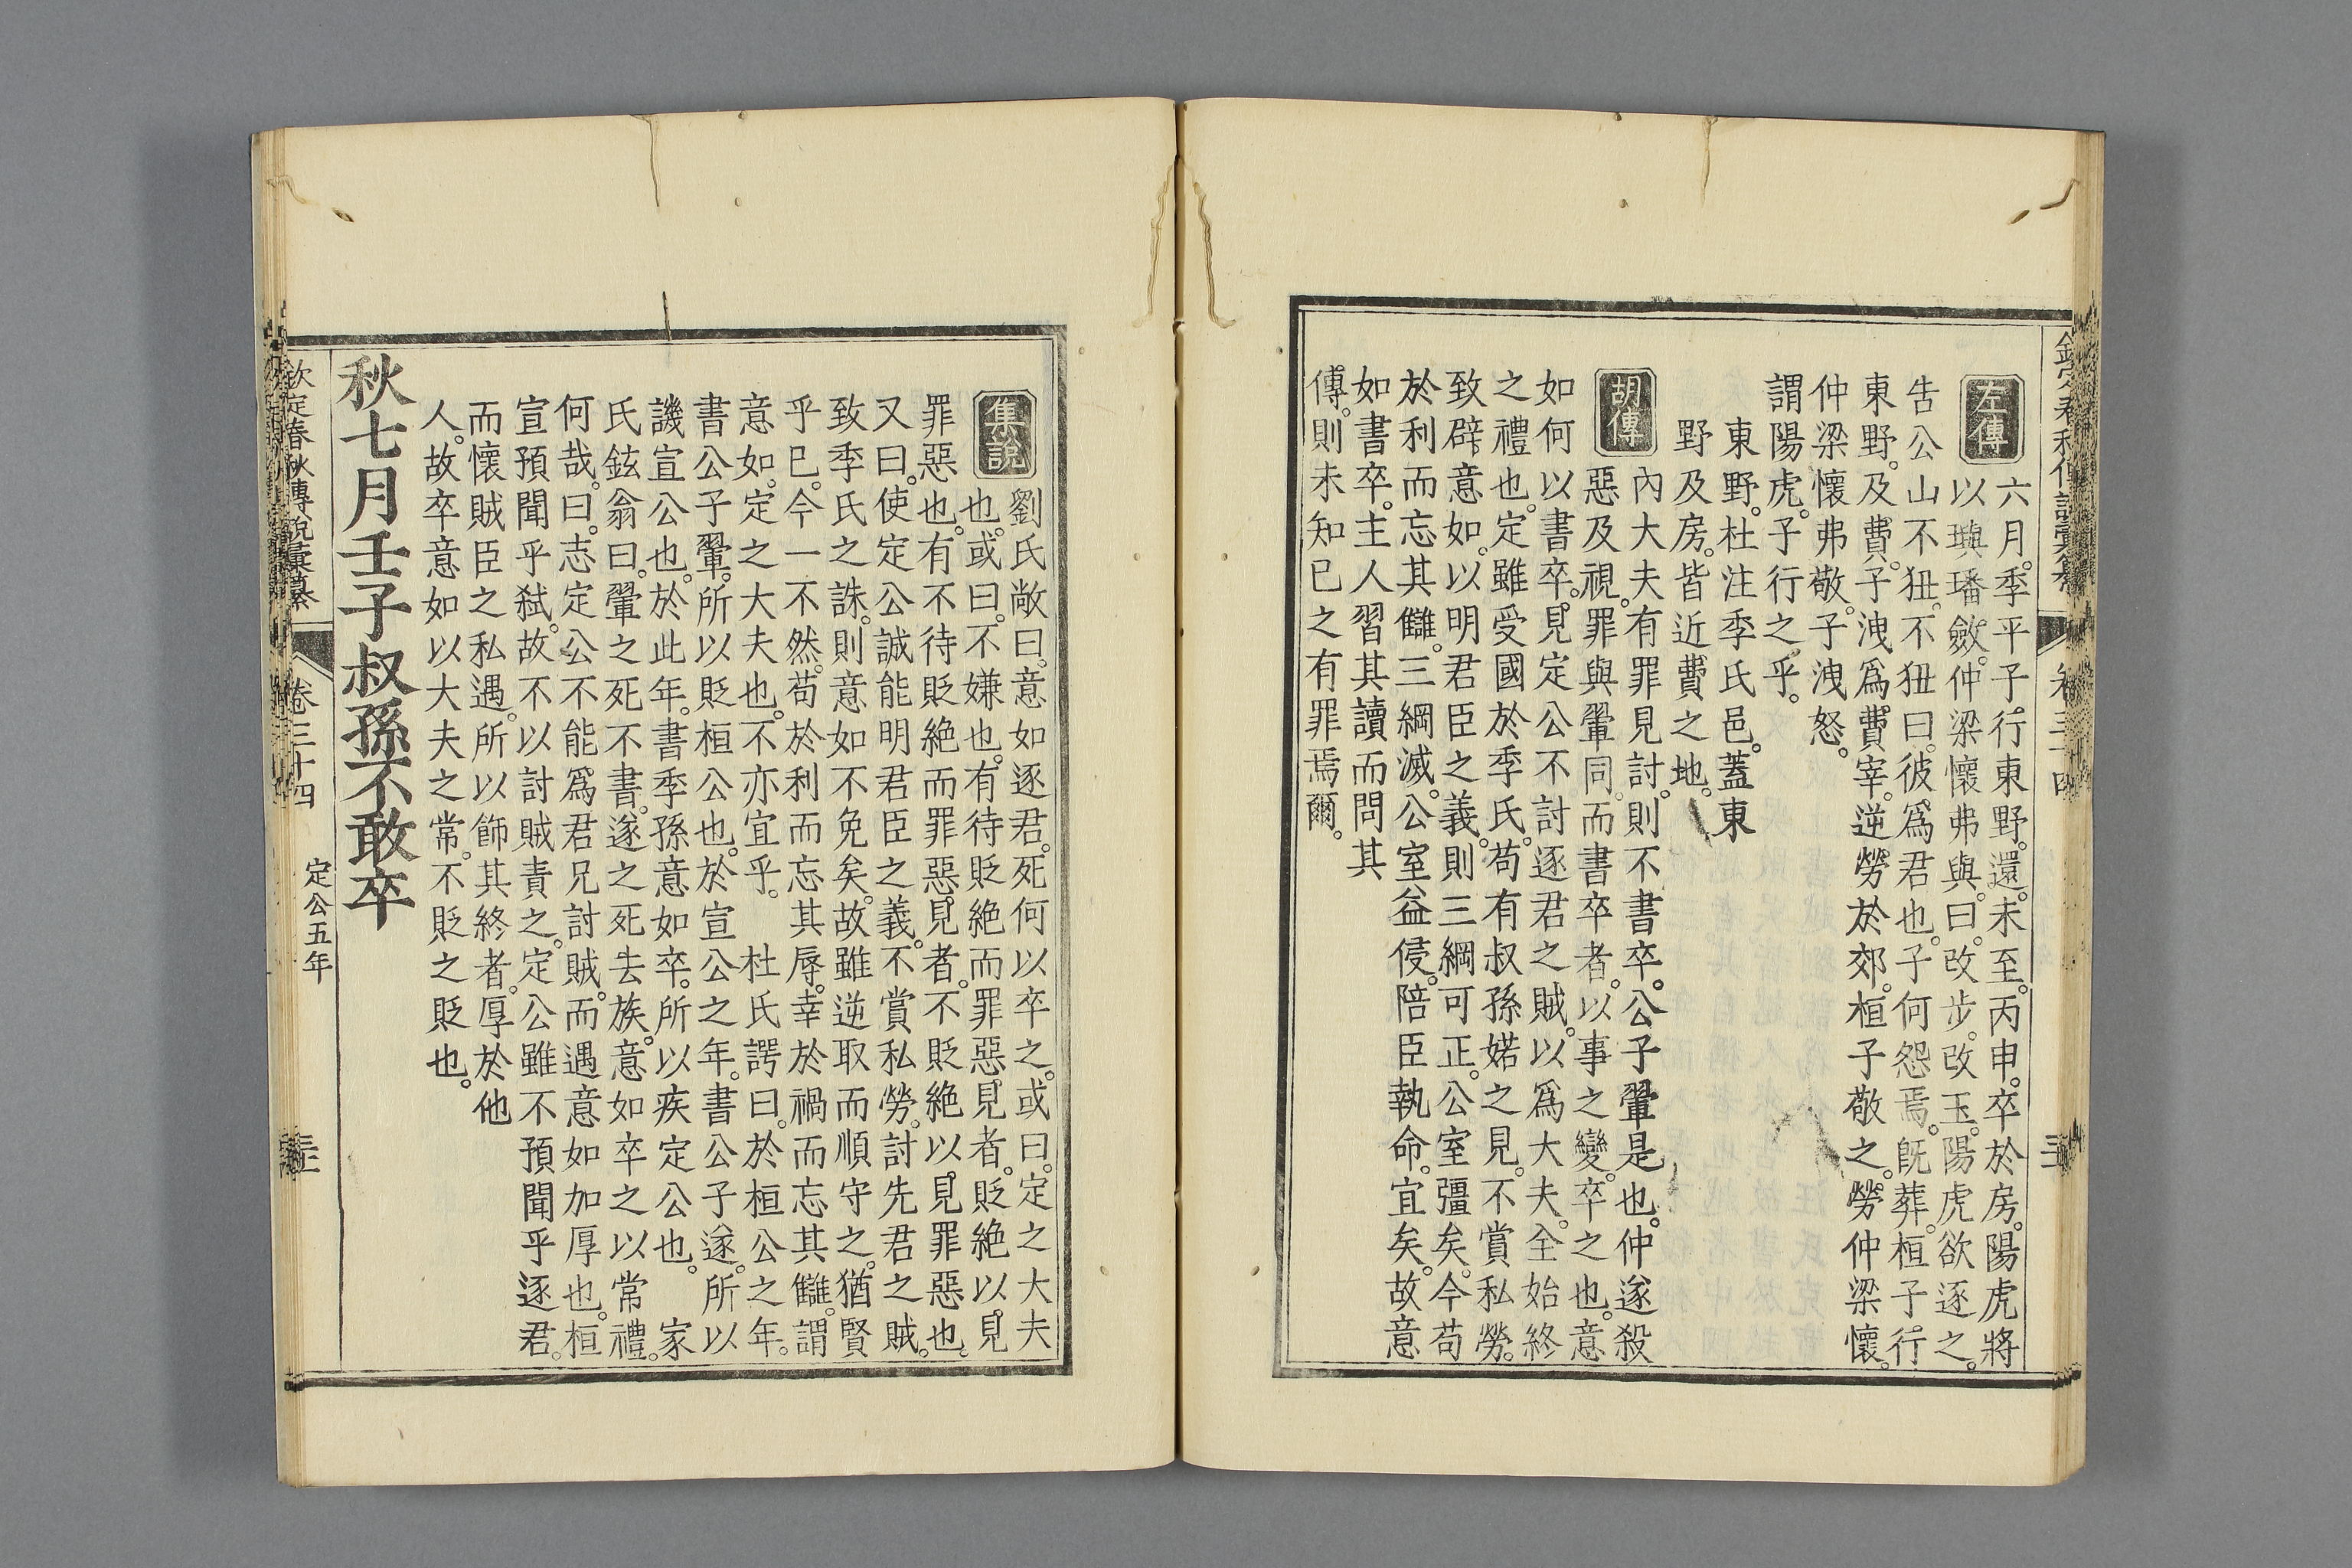 左傳
六月。季平子行東野。還。未至。丙申。卒於房。陽虎將
以璵璠斂。仲梁懷弗與。曰。改步。改玉。陽虎欲逐之。
告公山不狃。不狃曰。彼爲君也。子何怨焉。旣葬。桓子行
東野。及費。子洩爲費宰。逆勞於郊。桓子敬之。勞仲梁懷。
仲梁懷弗敬。子洩怒。
謂陽虎。子行之乎。
東野。杜注季氏邑。蓋東
野及房。皆近費之地。
胡傳
內大夫有罪見討。則不書卒。公子翬是也。仲遂殺
惡及視。罪與翬同。而書卒者。以事之變。卒之也。意
如何以書卒。見定公不討逐君之賊。以爲大夫。全始終
之禮也。定雖受國於季氏。苟有叔孫婼之見。不賞私勞。
致辟意如。以明君臣之義。則三綱可正。公室彊矣。今苟
於利而忘其讎。三綱滅。公室益侵。陪臣執命。宜矣。故意
如書卒。主人習其讀而問其
傳。則未知已之有罪焉爾。
集說
劉氏敞曰。意如逐君。死何以卒之。或曰。定之大夫
也。或曰。不嫌也。有待貶絶而罪惡見者。貶絶以見
罪惡也。有不待貶絶而罪惡見者。不貶絶以見罪惡也。
又曰。使定公誠能明君臣之義。不賞私勞。討先君之賊。
致季氏之誅。則意如不免矣。故雖逆取而順守之。猶賢
乎已。今一不然。苟於利而忘其辱。幸於禍而忘其讎。謂
意如。定之大夫也。不亦宜乎。 杜氏諤曰。於桓公之年。
書公子翬。所以貶桓公也。於宣公之年。書公子遂。所以
譏宣公也。於此年。書季孫意如卒。所以疾定公也。 家
氏鉉翁曰。翬之死不書。遂之死去族。意如卒之以常禮。
何哉。曰。志定公不能爲君兄討賊。而遇意如加厚也。桓
宣預聞乎弑。故不以討賊責之。定公雖不預聞乎逐君。
而懷賊臣之私遇。所以飾其終者。厚於他
人。故卒意如以大夫之常。不貶之貶也。
秋七月壬子叔孫不敢卒
欽定春秋傳說彙纂
卷三十四
定公五年